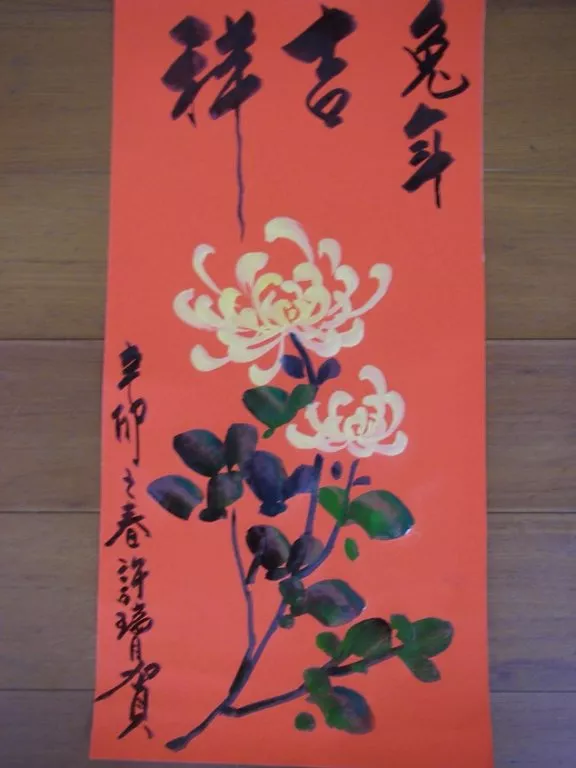 兔年
吉祥
辛卯之春許瑞賀